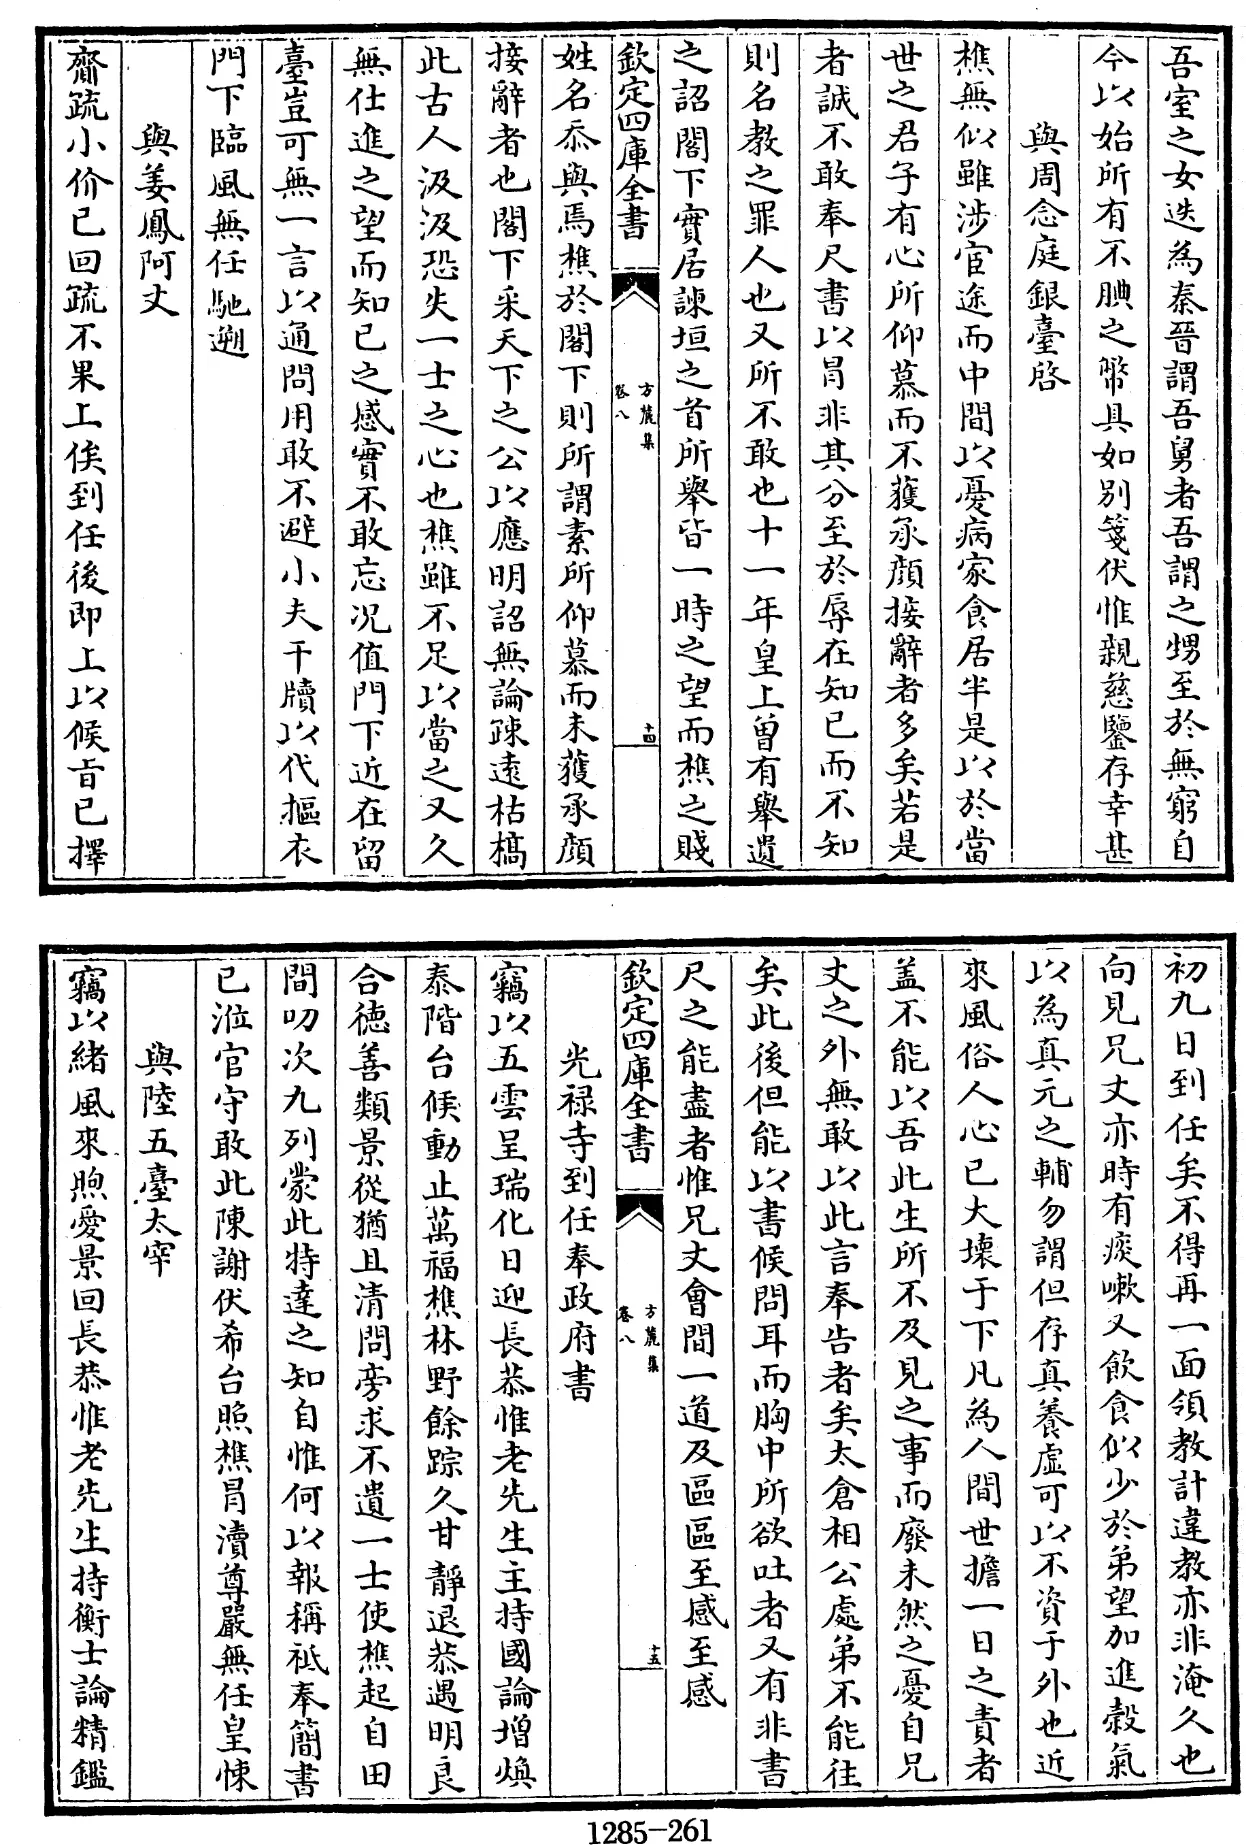 吾室之女迭為秦晉謂吾舅者吾謂之甥至於無窮自
今以始所有不腆之幣具如別箋伏惟親慈鑒存幸甚
與周念庭銀臺啓
樵無似雖涉宦途而中間以憂病家食居半是以於當
世之君子有心所仰慕而不獲承顏接辭者多矣若是
者誠不敢奉尺書以冒非其分至於辱在知已而不知
則名教之罪人也又所不敢也十一年皇上曽有舉遺
之詔閣下實居諫垣之首所舉皆一時之望而樵之賤
欽定四庫全書
方麓集
卷八
十四
姓名忝與焉樵於閣下則所謂素所仰慕而未獲承顏
接辭者也閣下采天下之公以應明詔無論踈遠枯槁
此古人汲汲恐失一士之心也樵雖不足以當之又久
無仕進之望而知已之感實不敢忘况值門下近在留
臺豈可無一言以通問用敢不避小夫干牘以代摳衣
門下臨風無任馳遡
與姜鳳阿丈
齎疏小价已回疏不果上俟到任後即上以候㫖已擇
初九日到任矣不得再一面領教計違教亦非淹久也
向見兄丈亦時有痰嗽又飲食似少於弟望加進穀氣
以為真元之輔勿謂但存真養虛可以不資于外也近
來風俗人心已大壊于下凡為人間世擔一日之責者
盖不能以吾此生所不及見之事而廢未然之憂自兄
丈之外無敢以此言奉告者矣太倉相公處弟不能往
矣此後但能以書候問耳而胸中所欲吐者又有非書
尺之能盡者惟兄丈會間一道及區區至感至感
欽定四庫全書
方麓集
卷八
十五
光禄寺到任奉政府書
竊以五雲呈瑞化日迎長恭惟老先生主持國論增煥
泰階台候動止萬福樵林野餘踪久甘靜退恭遇明良
合徳善類景從猶且清問旁求不遺一士使樵起自田
間叨次九列蒙此特達之知自惟何以報稱祗奉簡書
已涖官守敢此陳謝伏希台照樵冐瀆尊嚴無任皇悚
與陸五臺太宰
竊以緒風來煦愛景回長恭惟老先生持衡士論精鑑
1285-261